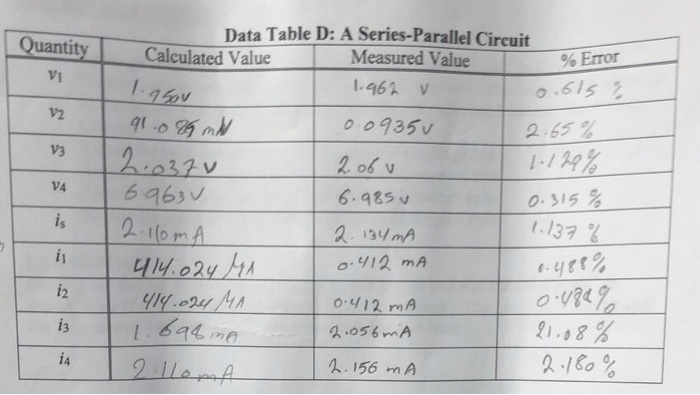 Data Table D: A Series-Parallel Circuit
Quantity Calculated Value Measured Value % Error
v1 1.950v 1.962 v 0.615 %
v2 91.085 mV 0.0935v 2.65 %
v3 2.037v 2.06 v 1.129%
v4 6.963v 6.985v 0.315 %
is 2.110mA 2.134mA 1.137 %
i1 414.024 MA 0.412 mA 0.488%
i2 414.024 MA 0.412 mA 0.488%
i3 1.698mA 2.056mA 21.08 %
i4 2.110mA 2.156 mA 2.180%